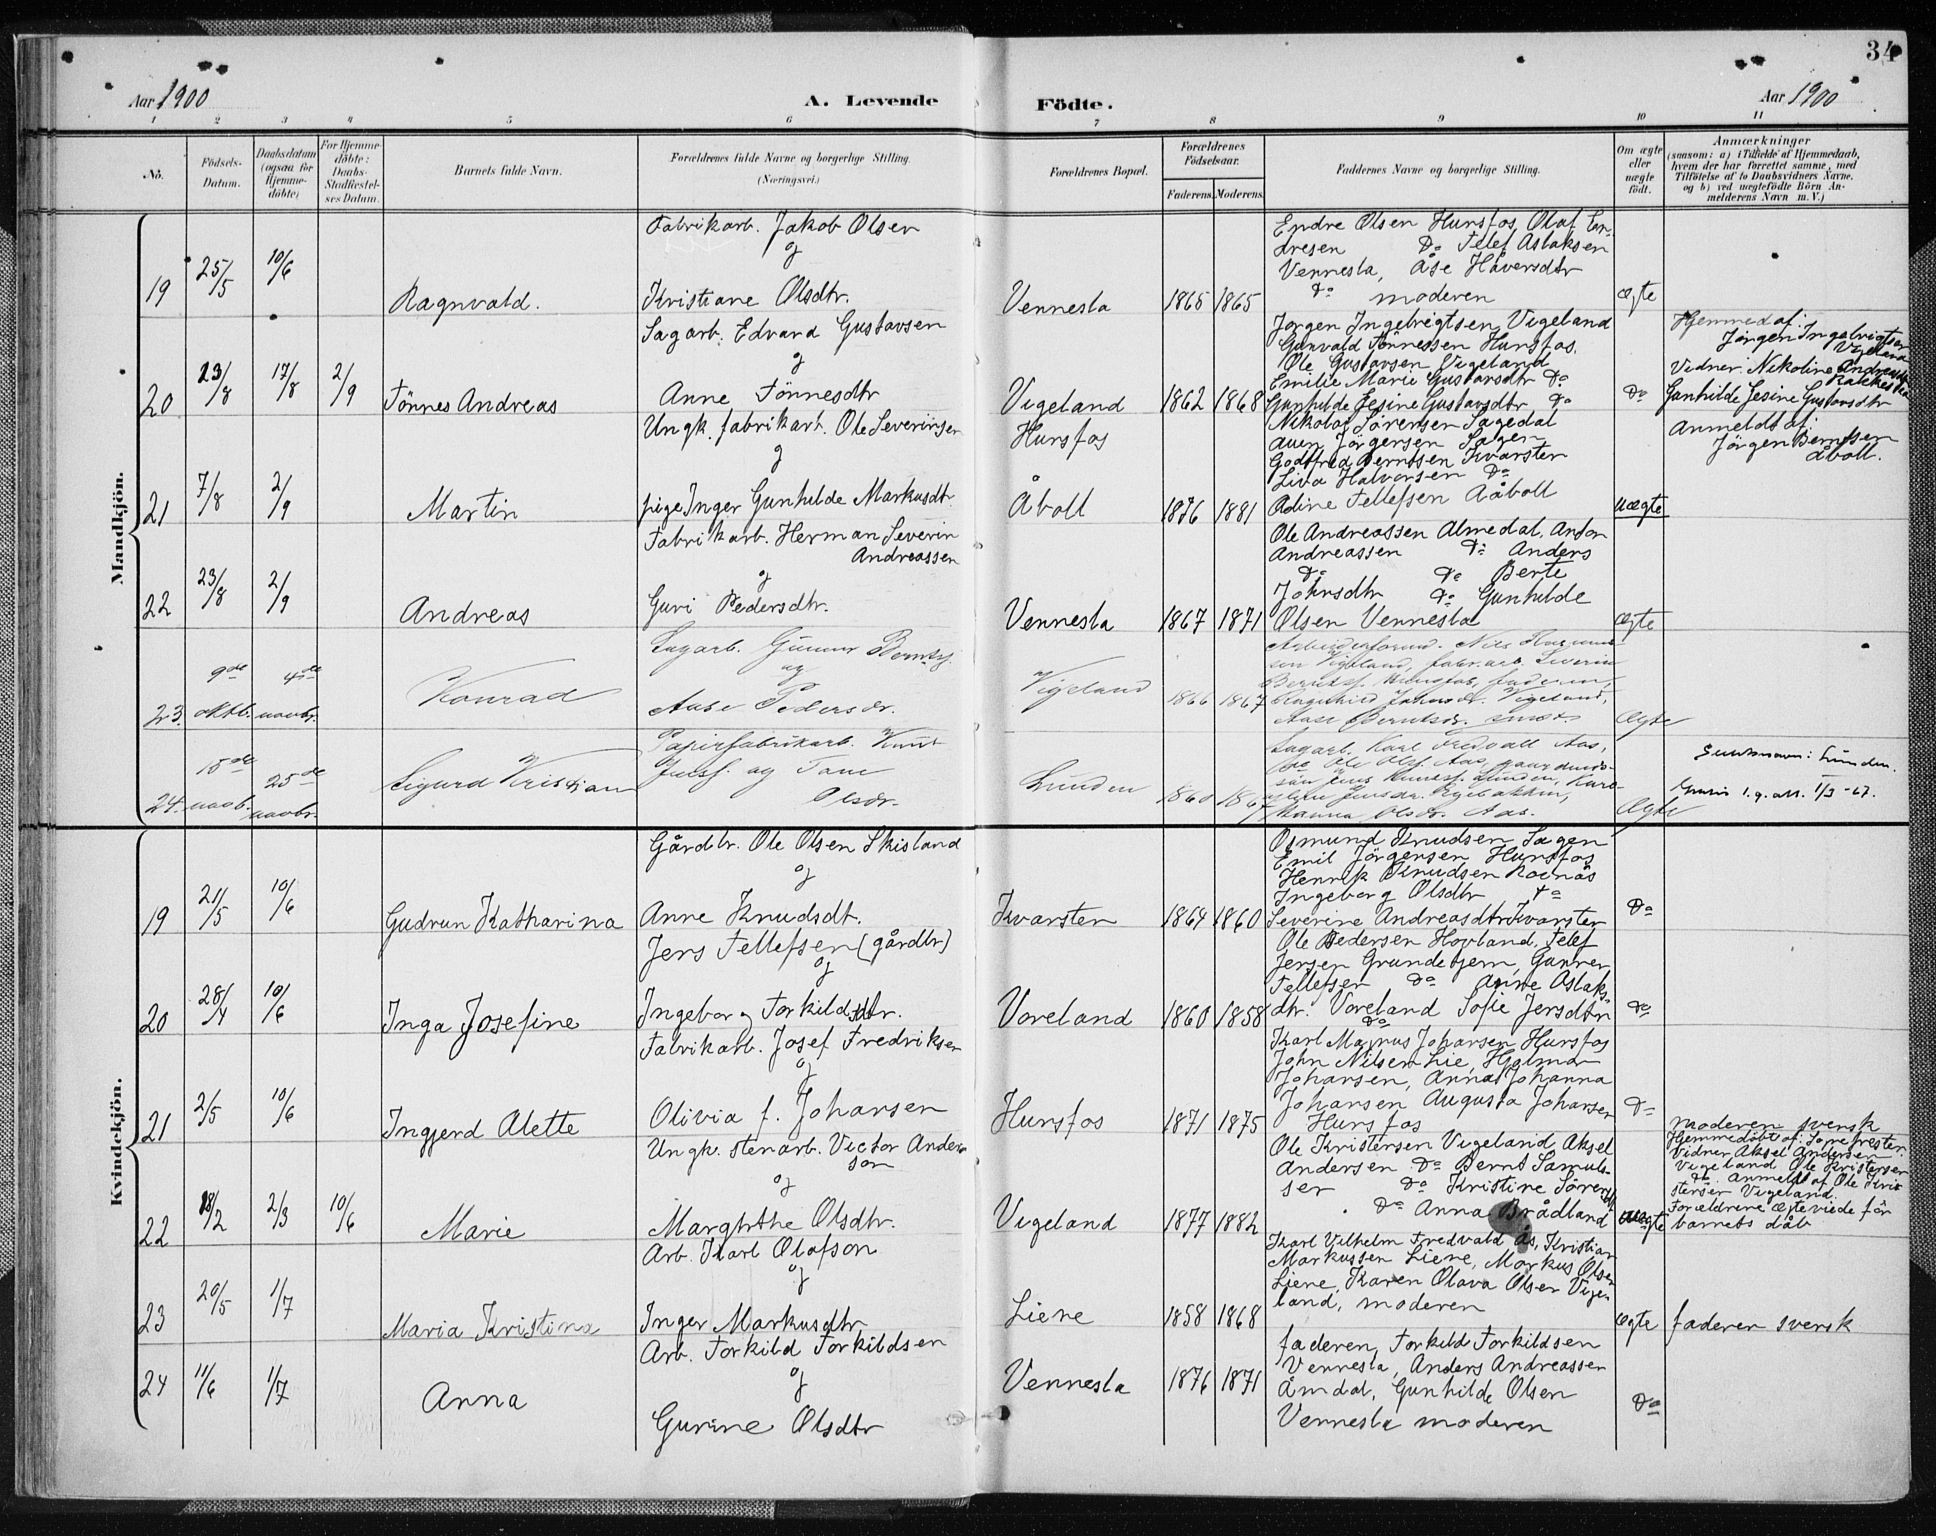 34
Aar 1900
A. Levende
Födte.
Aar 1900
1 2 3 4 5 6 7 8 9 10 11
No.
Födsels-
Datum.
Daabsdatum
(ogsaa for
Hjemme-
döbte)
For Hjemme-
döbte:
Daabs-
Stadfæstel-
ses Datum.
Barnets fulde Navn.
Forældrenes fulde Navne og borgerlige Stilling.
(Næringsvei.)
Forældrenes Bopæl.
Forældrenes
Födselsaar.
Faderens
Moderens
Faddernes Navne og borgerlige Stilling.
Om ægte
eller
uægte
födt.
Anmærkninger
(saasom: a) i Tilfælde af Hjemmedaab,
hvem der har forrettet samme, med
Tilföielse af to Daabsvidners Navne.
og b) ved uægtefödte Börn An-
melderens Navn m. V.)
Mandkjön.
19
25/5
10/6
Ragnvald.
Fabrikarb. Jakob Olsen
og
Kristiane Olsdtr.
Vennesla
1865
1865
Endre Olsen Hunsfos, Olaf En-
dresen Do Tellef Aslaksen
Vennesla, Åse Håversdtr
Do moderen
ægte
20
23/8
17/8
2/9
Tönnes Andreas
Sagarb. Edvard Gustavsen
og
Anne Tönnesdtr
Vigeland
1862
1868
Jörgen Ingebrigtsen Vigeland
Gunvald Tönnessen Hunsfos.
Ole Gustavsen Vigeland
Emilie Marie Gustavsdtr Do
Gunhilde Jesine Gustavsdtr Do
Do
Hjemmed af:
Jörgen Ingebrigtsen
Vigeland
Vidner Nikoline
Gunhilde Jesine Gustavsdtr
21
7/8
2/9
Martin
Ungk. fabrikarb. Ole Severinsen
og
pige Inger Gunhilde Markusdtr
Hunsfos
Åboll
1876
1881
Nikolai Sörensen Sagedal
Auen Jörgensen Sagen
Godtfred Berntsen Kvarsten
Liva Halvorsen Do
Adine Tellefsen Aåboll
uægte
Anmeldt af
Jörgen Berntsen
Åboll.
22
23/8
2/9
Andreas
Fabrikarb. Herman Severin
Andreassen
og
Guri Pedersdtr.
Vennesla
1867
1871
Ole Andreassen Almedal, Anton
Andreassen Do Anders
Do Do Berte
Johnsdtr Do Gunhilde
Olsen Vennesla
ægte
23.
9de oktb.
4de novbr.
Konrad
Sagarb. Gunnar Berntsf.
og
Aase Pedersdr.
Vigeland
1866
1867
Vigeland, fabr.arb. Severin
Berntsf. Hunsfos, faderen,
Ragnhild Johnsdr. Vigeland,
Aase Berntsdr.
Ægte
24.
15de novb.
25de novbr.
Sigurd Kristian
Papirfabrikarb. Knut
Jensf. og Tone
Olsdr.
Lunden
1860
1867
Sagarb. Karl Fredvall Aas,
Ole Olsf. Aas, gaardmands-
sön Jens Knutsf. Lunden, Karo-
line Jensdr.
Hanna Olsdr. Aas.
Ægte
Lunden.
1/3 -67.
Kvindekjön.
19
21/5
10/6
Gudrun Katharina
Gårdbr. Ole Olsen Skisland
og
Anne Knudsdt.
Kvarsten
1864
1860
Osmund Knudsen Sagen
Emil Jörgensen Hunsfos
Henrik Knudsen Rosnäs
Ingeborg Olsdtr Do
Severine Andreasdtr Kvarsten
Do
20
28/4
10/6
Inga Josefine
Jens Tellefsen (gårdbr)
og
Ingeborg Torkildsdtr.
Voreland
1860
1858
Ole Pedersen Hovland, Tellef
Jensen Grundetjern, Gunner
Tellefsen Do Anne Aslaks-
dtr. Voreland Sofie Jensdtr
Do
Do
21
2/5
10/6
Ingjerd Alette
Fabrikarb. Josef Fredriksen
og
Olivia f. Johansen
Hunsfos
1871
1875
Karl Magnus Johansen Hunsfos
John Nilsen Lie, Hjalmar
Johansen, Anna Johanna
Johansen Augusta Johansen
Hunsfos
Do
22
18/2
2/3
10/6
Marie
Ungk. stenarb. Victor Ander-
son
og
Marghthe Olsdtr.
Vigeland
1877
1882
Ole Kristensen Vigeland Aksel
Andersen Do Bernt Samuel-
sen Do Kristine Sörensdtr
Do Anna Brådland
uægte
moderen svensk
Hjemmedöbt af: Sogneprester.
Vidner Aksel Andersen
Vigeland Ole Kristensen
Do. Anmeldt af Ole Kri-
stensen Vigeland.
Forældrene ægteviede för
barnets dåb
23
20/5
1/7
Maria Kristina
Arb. Karl Olafson
og
Inger Markusdtr
Liene
1858
1868
Karl Vilhelm Fredvald Ås, Kristian
Markussen Liene, Markus Olsen
Liene, Karen Olava Olsen Vige-
land, moderen
ægte
faderen svensk
24
11/6
1/7
Anna
Arb. Torkild Torkildsen
og
Gurine Olsdtr
Vennesla
1876
1871
faderen, Torkild Torkildsen
Vennesla, Anders Andreassen
Åmdal, Gunhilde Olsen
Vennesla moderen
Do